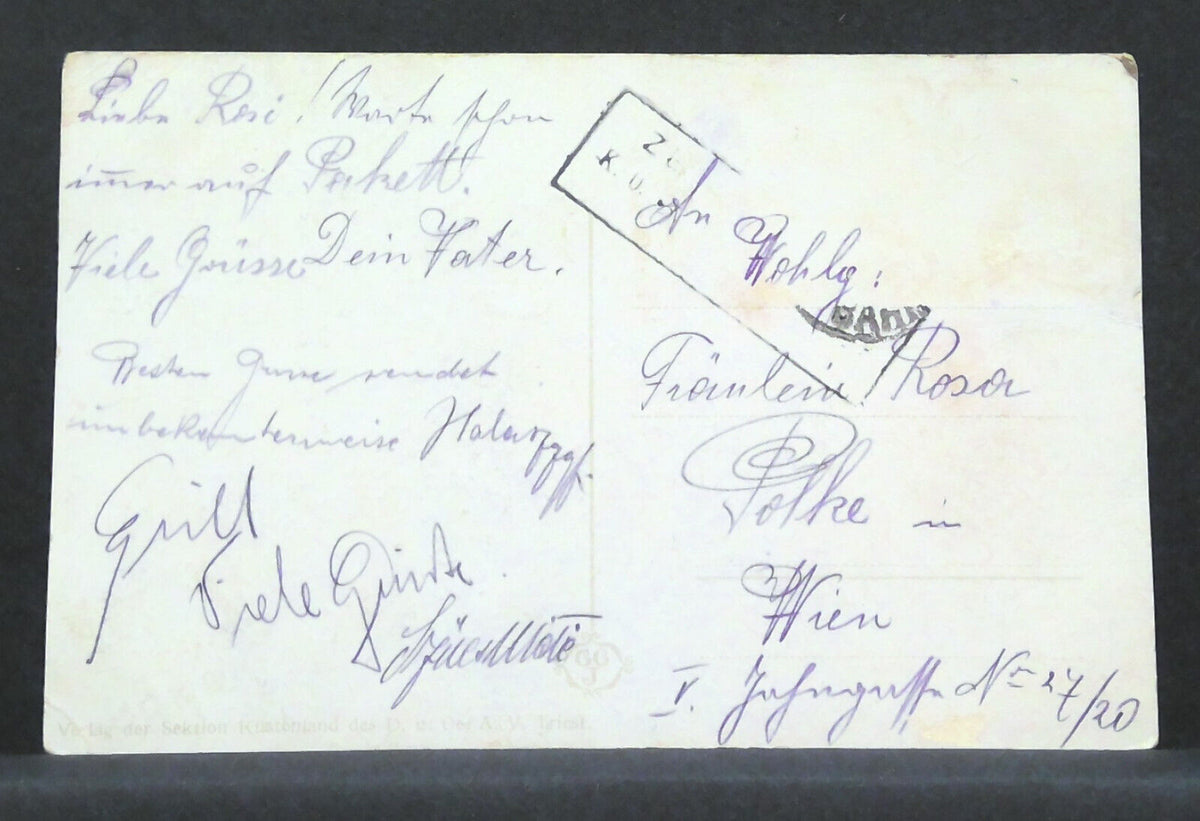 Liebe Rosi! Warte schon
immer auf Pakett.
Viele Grüsse Dein Vater.
Besten Gruss sendet
unbekannterweise
Grill
Viele Grüsse
Verlag der Sektion Küstenland des D. u. Oe. A. V. Triest.
Z
K. u.
An
Wohlg:
BAHN
Fräulein Rosa
Polke in
Wien
V. Jahngasse No 27/20